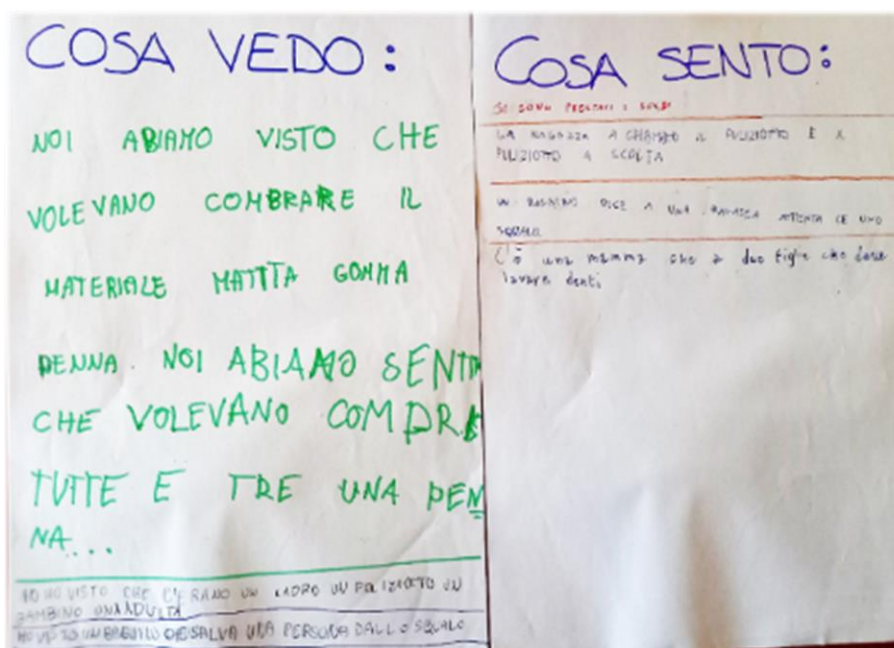 COSA VEDO:
NOI ABIAMO VISTO CHE
VOLEVANO COMBRARE IL
MATERIALE MATITA GOMMA
PENNA. NOI ABIAMO SENTI
CHE VOLEVANO COMPRA
TUTTE E TRE UNA PEN
NA...
IO HO VISTO CHE C'ERANO UN LADRO UN POLIZIOTTO UN
BAMBINO UNA ADULTA
HO VISTO UN BAGNINO SALVA UNA PERSONA DALLO SQUALO
COSA SENTO:
SI SONO PRESTATI I SOLDI
LA RAGAZZA A CHIAMATO IL PULIZIOTTO E IL
PULIZIOTTO A SCOLTA
UN BAGNINO DICE A UNA RAGAZZA ATTENTA CE UNO
SQUALO
C'è una mamma che a due figlie che deve
lavare denti